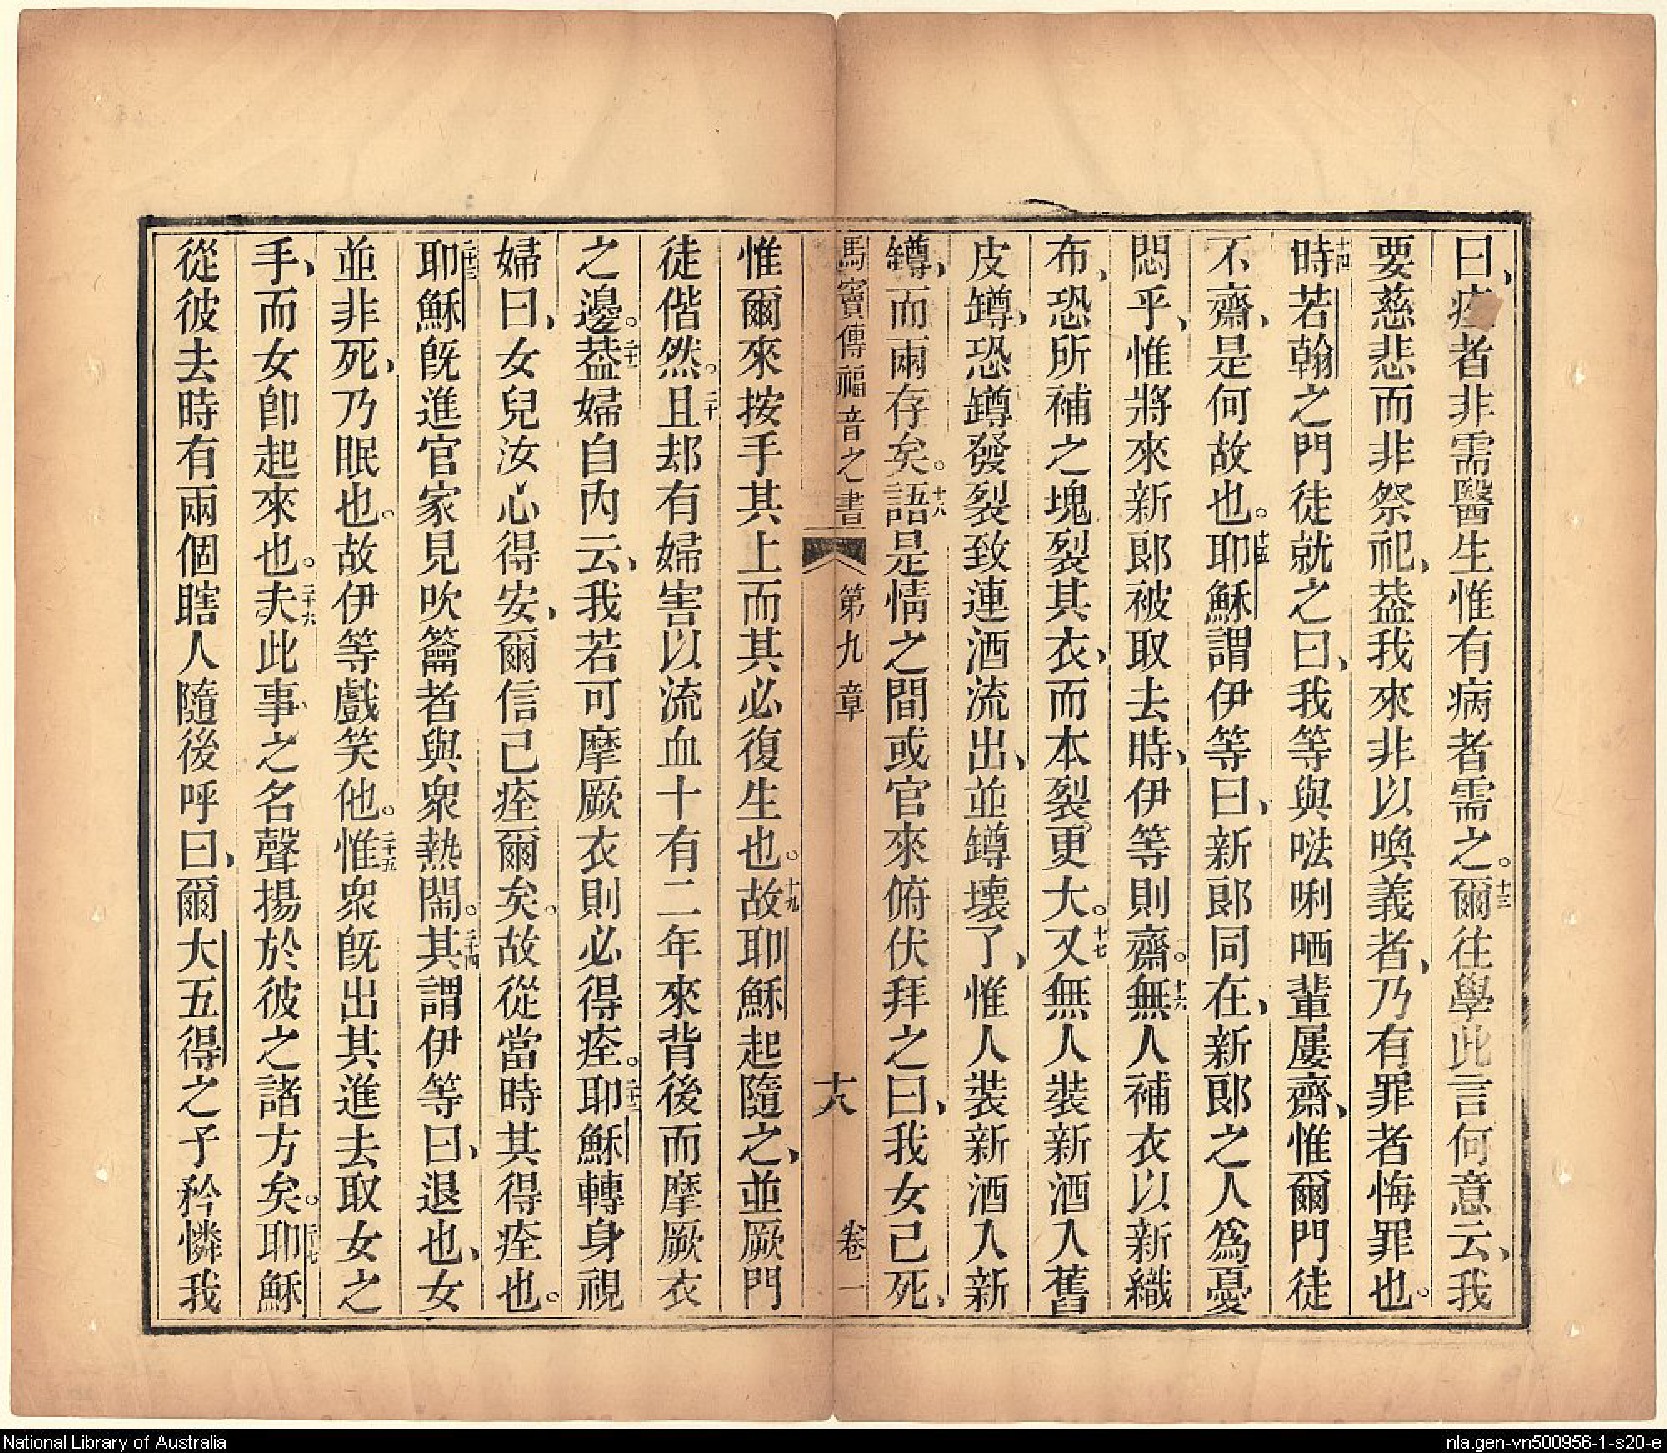 曰、痊者非需醫生惟有病者需之。十三爾往學此言何意云、我
要慈悲而非祭祀、葢我來非以喚義者、乃有罪者悔罪也。
十四時若翰之門徒就之曰、我等與𠵽唎哂輩屢齋、惟爾門徒
不齋、是何故也。十五耶穌謂伊等曰、新郎同在、新郎之人為憂
悶乎、惟將來新郎被取去時、伊等則齋。十六無人補衣以新織
布、恐所補之塊裂其衣、而本裂更大。十七又無人裝新酒入舊
皮罇、恐罇發裂致連酒流出、並罇壞了、惟人裝新酒入新
罇、而兩存矣。十八語是情之間或官來俯伏拜之曰、我女已死、
馬竇傳福音之書 第九章 十八 卷一
惟爾來按手其上而其必復生也。十九故耶穌起隨之、並厥門
徒偕然。二十且却有婦害以流血十有二年來背後而摩厥衣
之邊。二十一葢婦自內云、我若可摩厥衣則必得痊。二十二耶穌轉身視
婦曰、女兒汝心得安、爾信已痊爾矣。故從當時其得痊也。
二十三耶穌既進官家見吹籥者與衆熱鬧。二十四其謂伊等曰、退也、女
並非死、乃眠也。故伊等戲笑他。二十五惟衆既出其進去取女之
手、而女卽起來也。二十六夫此事之名聲揚於彼之諸方矣。二十七耶穌
從彼去時有兩個瞎人隨後呼曰、爾大五得之子矜憐我
National Library of Australia
nla.gen-vn500956-1-s20-e